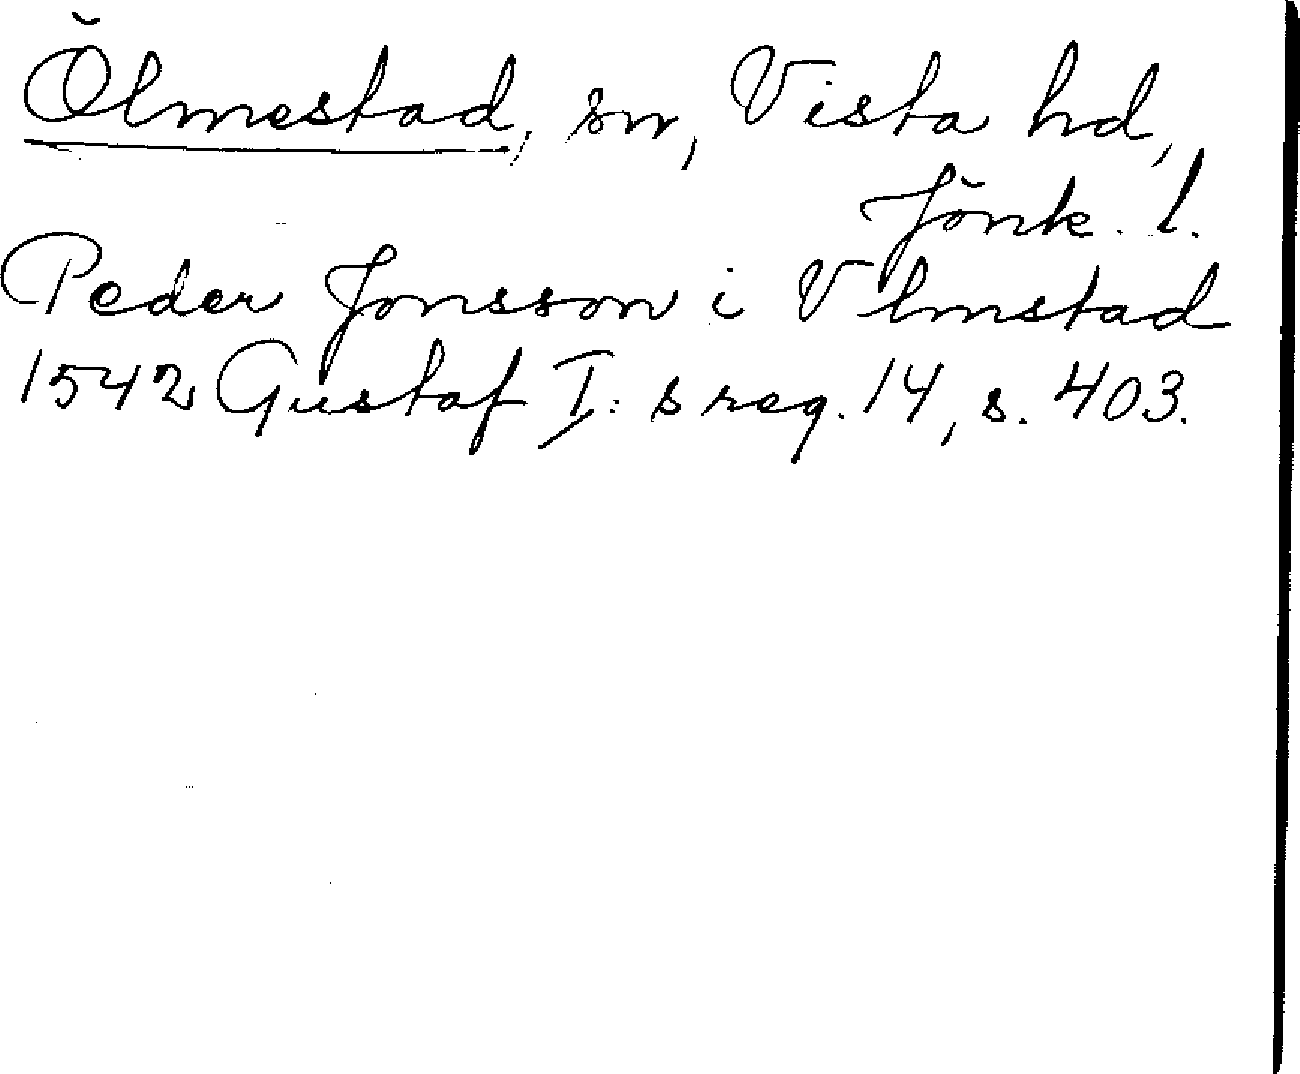 Ölmestad, sn, Vista hd,
Jönk. l.
Peder Jonsson i Vlmstad
1542 Gustaf I: s reg. 14, s. 403.